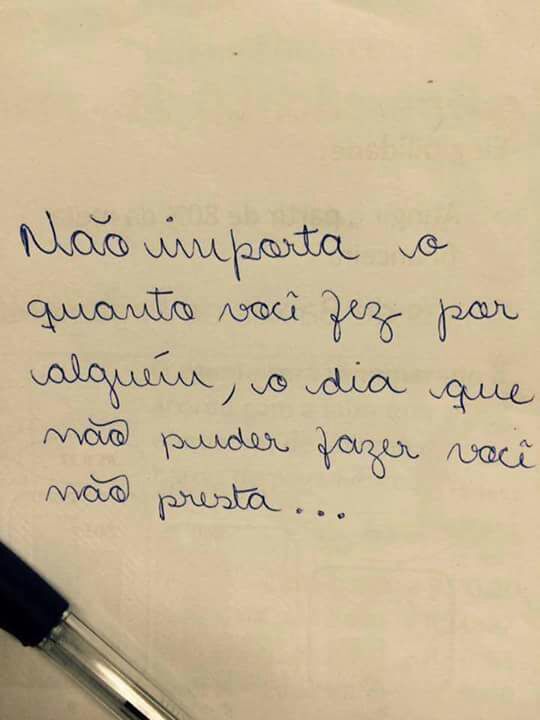 Não importa o
quanto você fez por
alguém, o dia que
não puder fazer você
não presta...